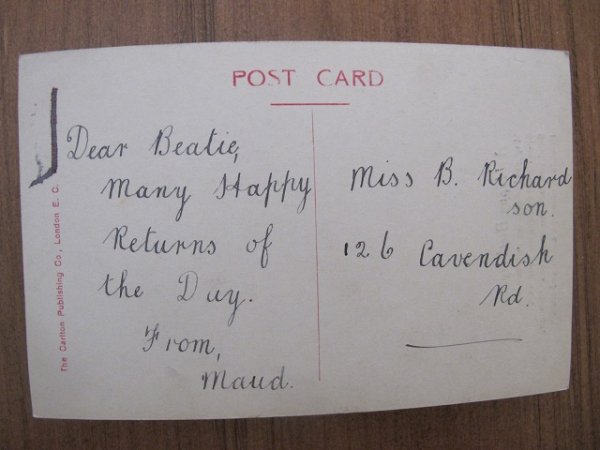 POST CARD
Dear Beatie,
Many Happy
Returns of
the Day.
From,
Maud.
Miss B. Richard
son.
126 Cavendish
Rd.
The Carlton Publishing Co, London E. C.